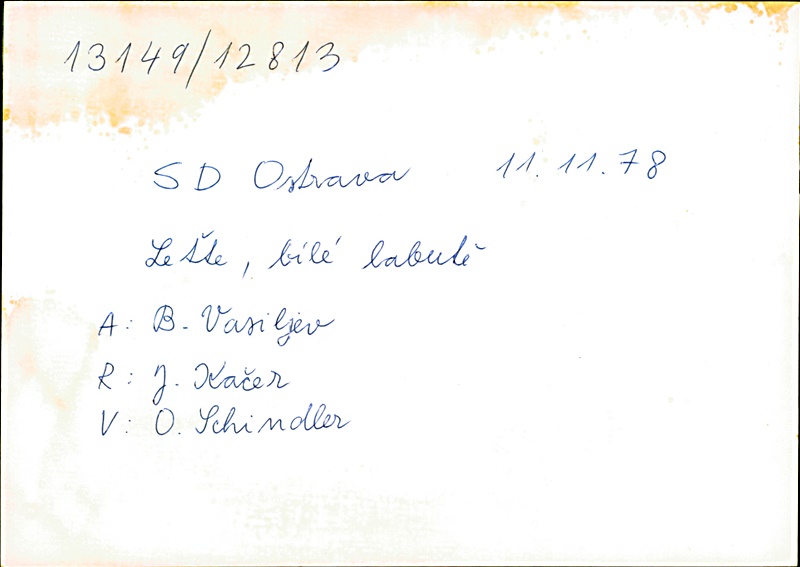 13149/12813
SD Ostrava 11.11.78
Lešte, bílé labutě
A: B. Vasiljev
R: J. Kačer
V: O. Schindler